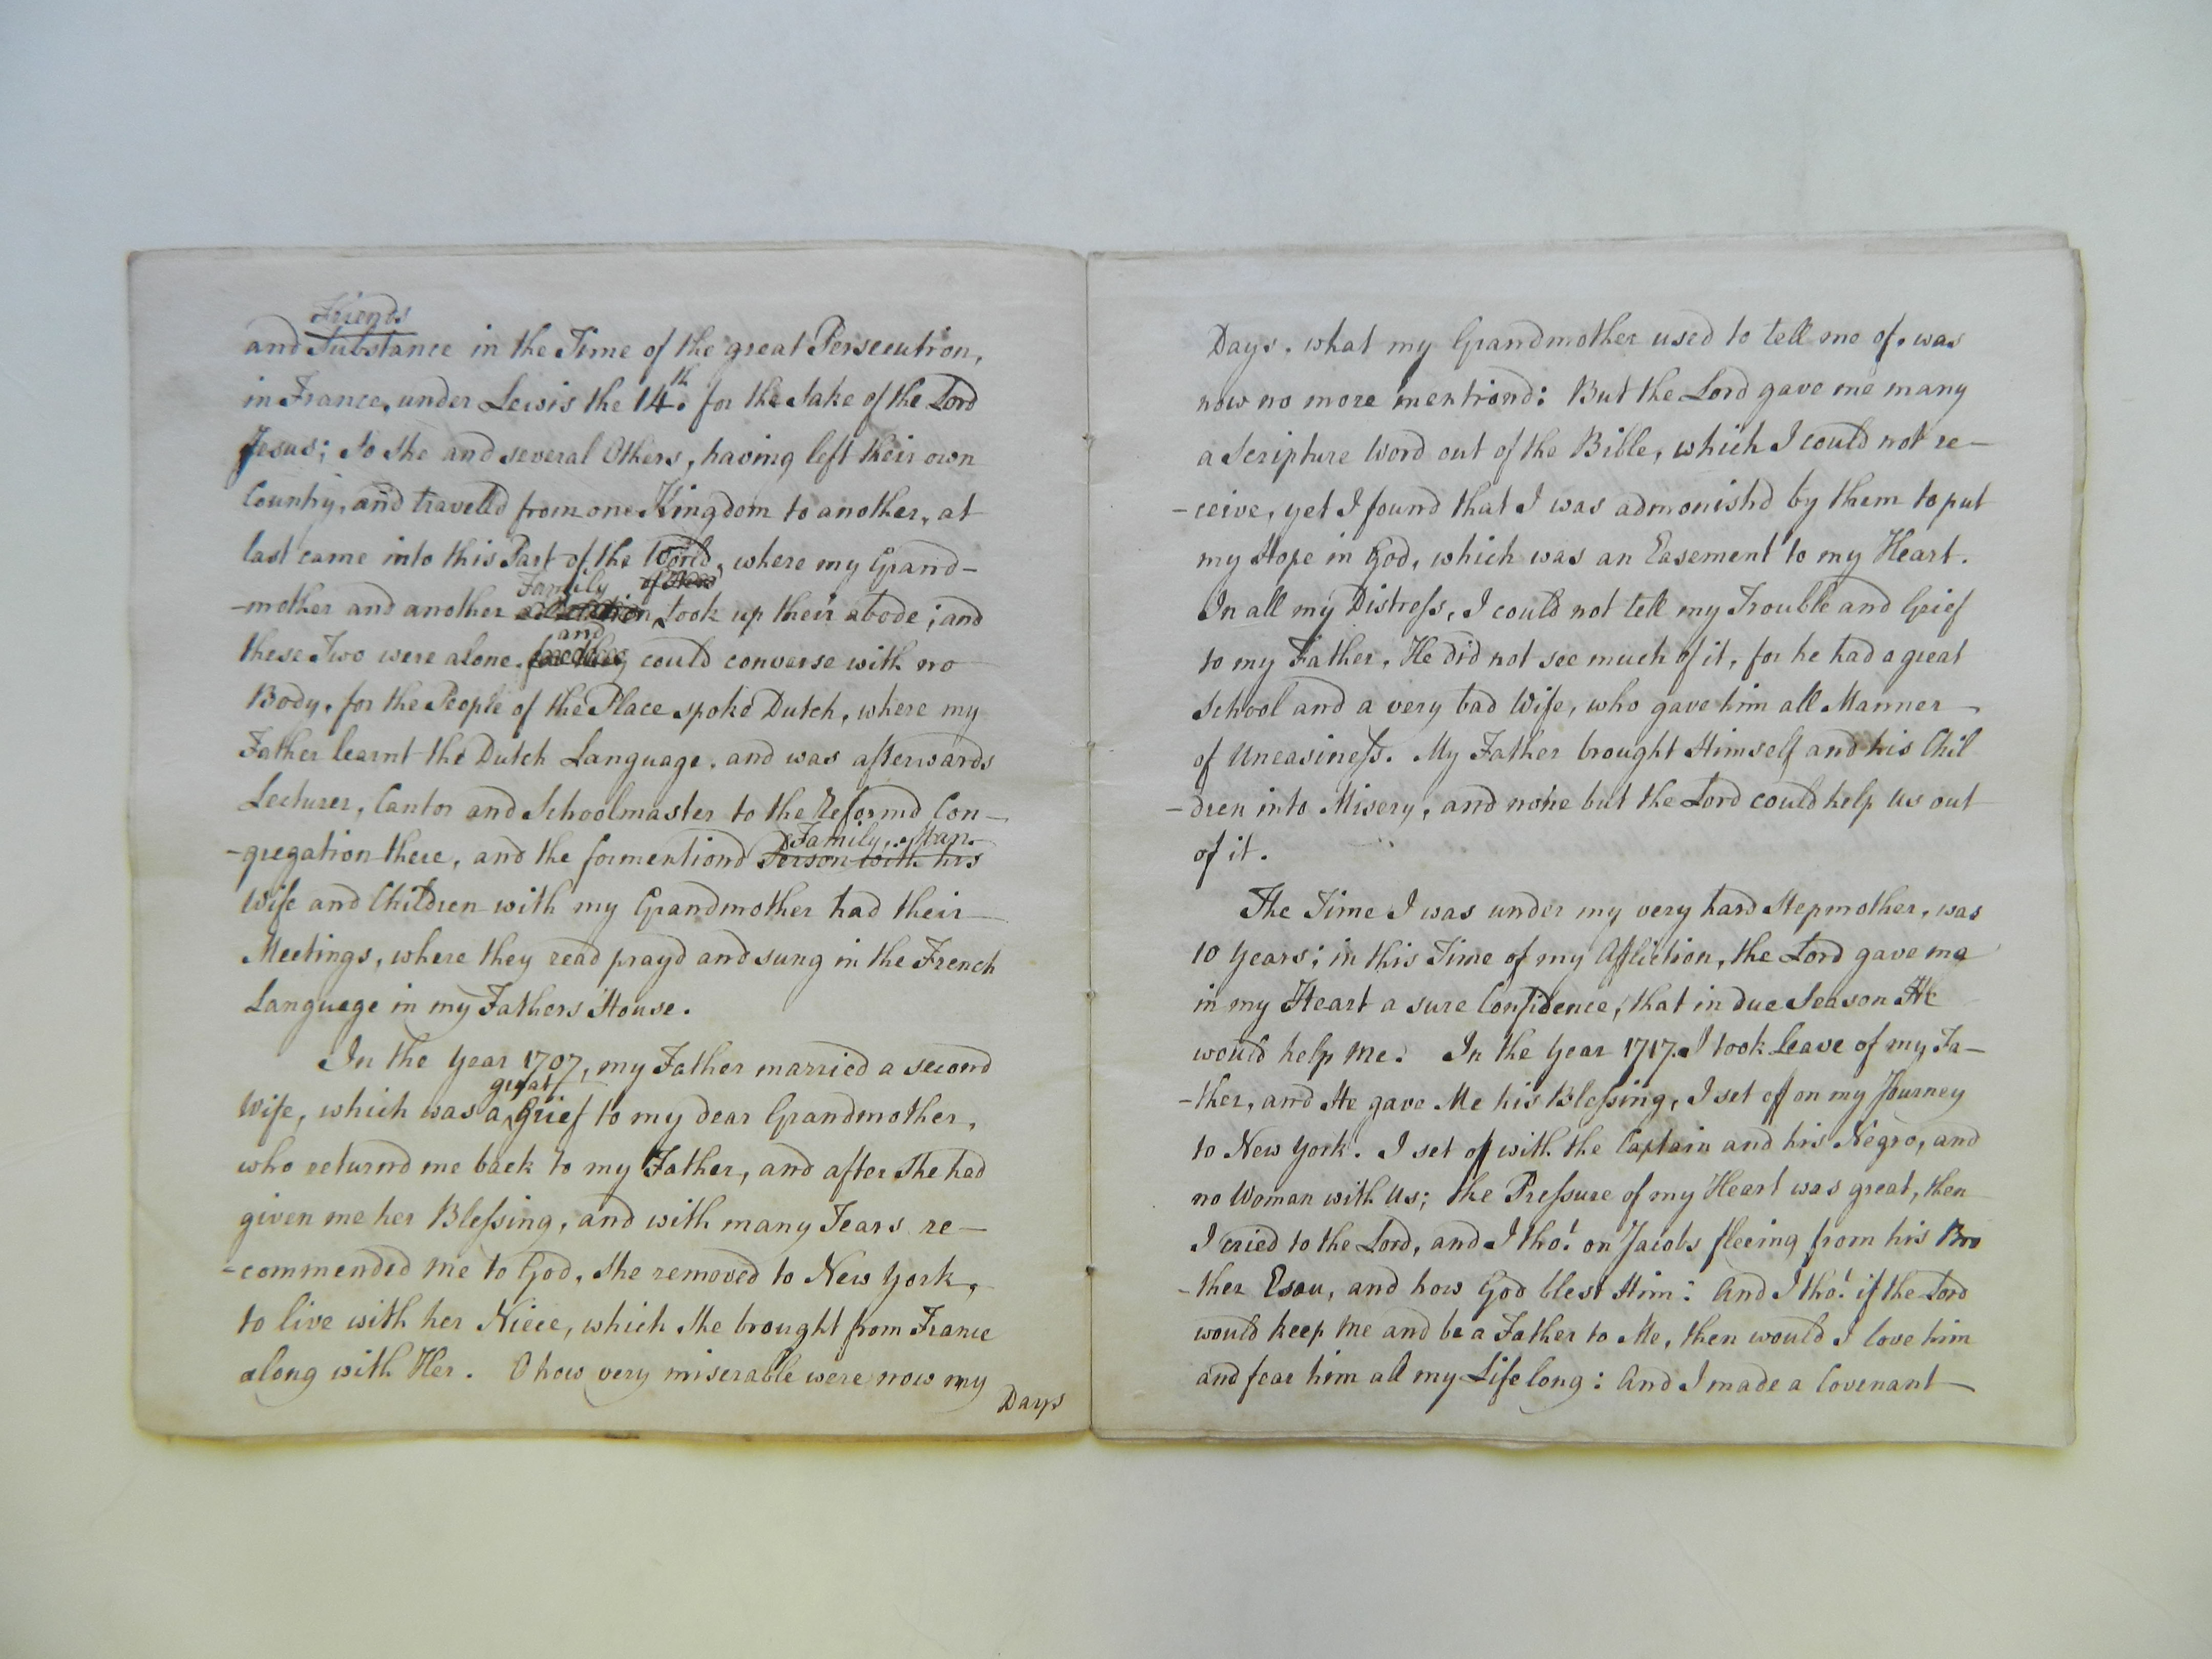 Friends
and Substance in the Time of the great Persecution,
in France, under Lewis the 14th. for the Sake of the Lord
Jesus; So she and several Others, having left their own
Country, and travelld from one Kingdom to another, at
last came into this Part of the World, where my Grand-
Family
-mother and another took up their abode; and
and
these Two were alone, could converse with no
Body, for the People of the Place spoke Dutch, where my
Father learnt the Dutch Language, and was afterwards
Lecturer, Cantor and Schoolmaster to the Reformd Con-
Family, Man
-gregation there, and the formentiond Person with his
Wife and Children with my Grandmother had their
Meetings, where they read prayd and sung in the French
Language in my Fathers House.
In the Year 1707, my Father married a second
great
Wife, which was a Grief to my dear Grandmother,
who returnd me back to my Father, and after She had
given me her Blessing, and with many Tears re-
-commended me to God, She removed to New York,
to live with her Niece, which She brought from France
along with Her. O how very miserable were now my
Days
Days. what my Grandmother used to tell me of, was
now no more mentiond: But the Lord gave me many
a Scripture Word out of the Bible, which I could not re-
-ceive, yet I found that I was admonishd by them to put
my Hope in God, which was an Easement to my Heart.
In all my Distress, I could not tell my Trouble and Grief
to my Father, He did not see much of it, for he had a great
School and a very bad Wife, who gave him all Manner
of Uneasiness. My Father brought Himself and his Chil
-dren into Misery, and none but the Lord could help Us out
of it.
The Time I was under my very hard Stepmother, was
10 Years; in this Time of my Affliction, the Lord gave me
in my Heart a sure Confidence, that in due Season He
would help Me. In the Year 1717. I took Leave of my Fa-
-ther, and He gave Me his Blessing, I set of on my Journey
to New York. I set of with the Captain and his Negro, and
no Woman with Us; the Pressure of my Heart was great, then
I cried to the Lord, and I tho't on Jacobs fleeing from his Bro
-ther Esau, and how God blest Him: And I tho't if the Lord
would keep Me and be a Father to Me, then would I love him
and fear him all my Life long: And I made a Covenant